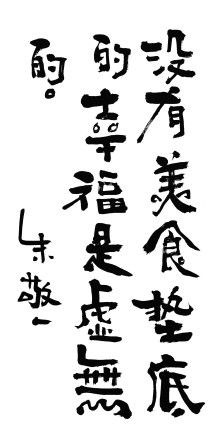 没有美食墊底
的幸福是虛無
的。
朱敬一